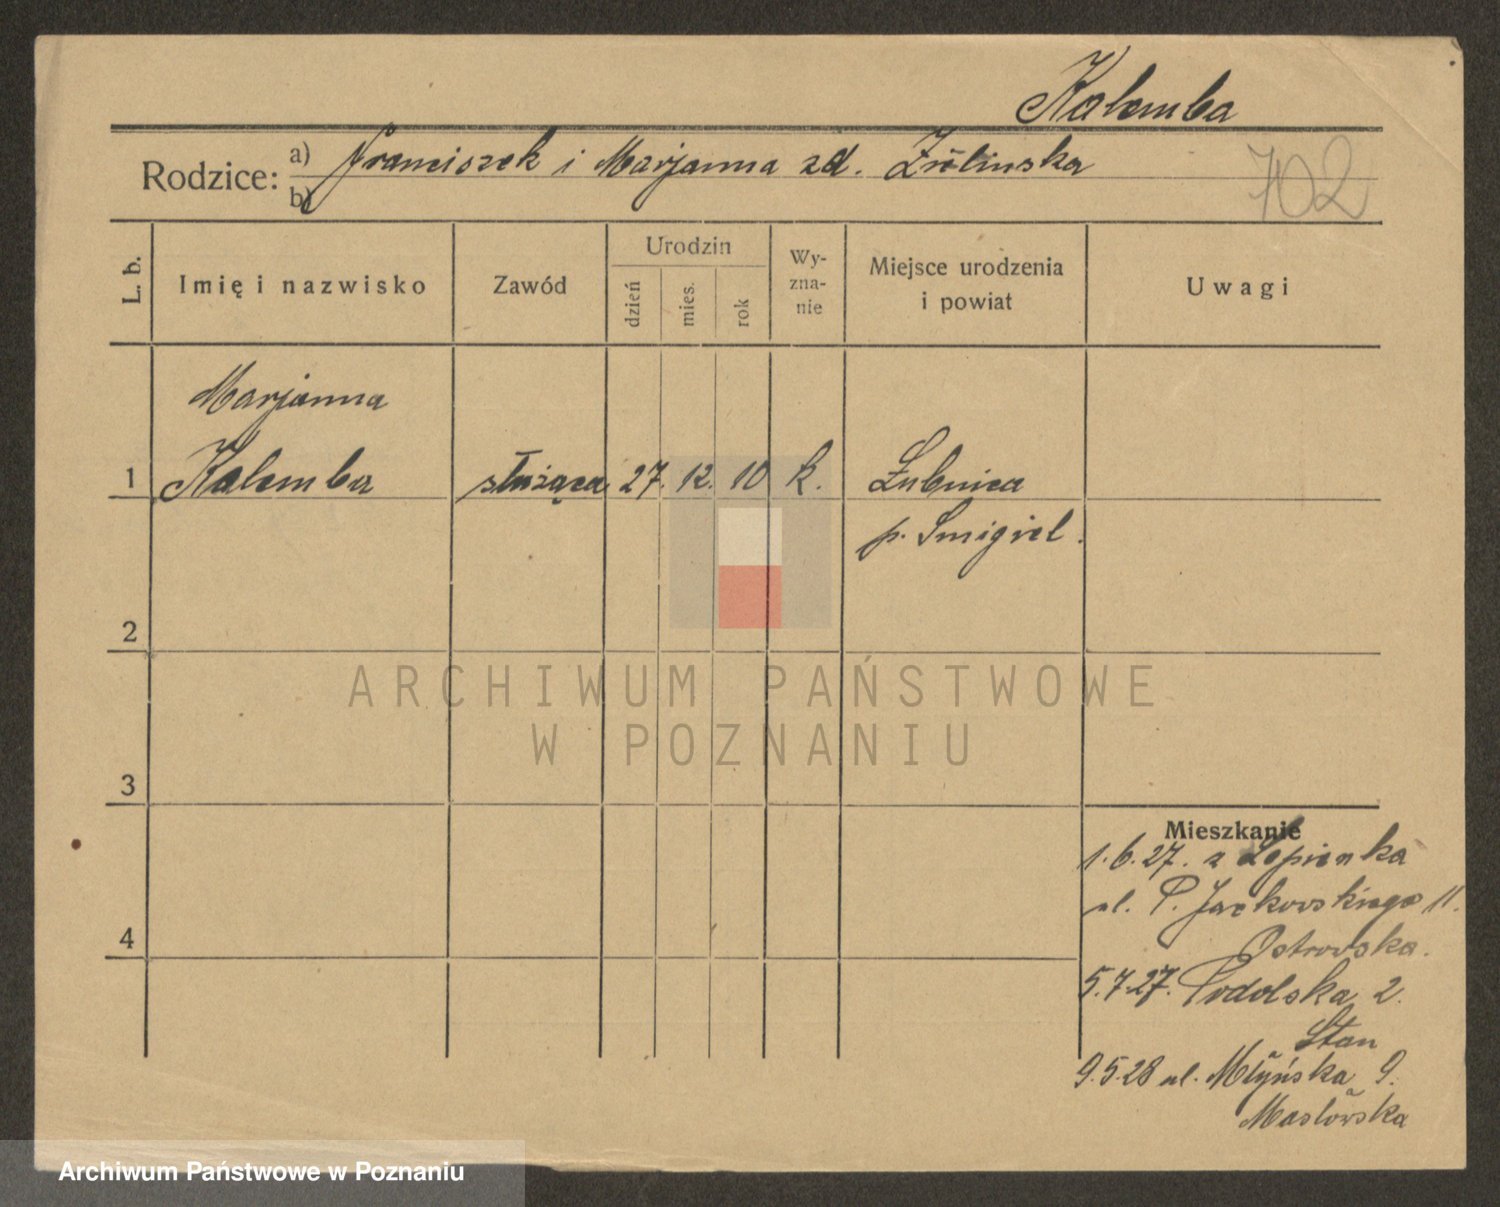 Kalemba
Rodzice: a) Franciszek i Marjanna zd.
b)
702
L. b.
Imię i nazwisko
Zawód
Urodzin
dzień
mies.
rok
Wy-
zna-
nie
Miejsce urodzenia
i powiat
Uwagi
Marjanna
1 Kalemba służąca 27. 12. 10 k. Łubnica
p. Smigiel.
2
ARCHIWUM PAŃSTWOWE
W POZNANIU
3
Mieszkanie
1.6.27. z Łopienka
ul. P. Jackowskiego 11.
Ostrowska.
4
5.7.27. Podolska 2.
Stan
9.5.28 ul. Młyńska 9.
Masłowska
Archiwum Państwowe w Poznaniu